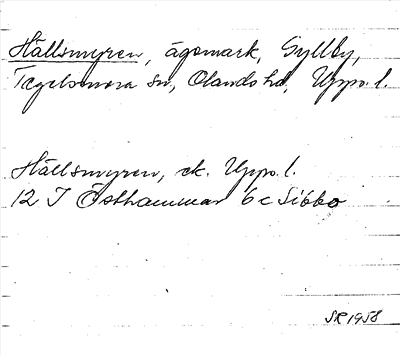 Hällsmyren, ägomark, Gyllby,
Tegelsmora sn, Olands hd, Uppv. l.
Hällsmyren, ek. Uppv. l.
12 I Östhammar 6 c Sibbo
SR 1958